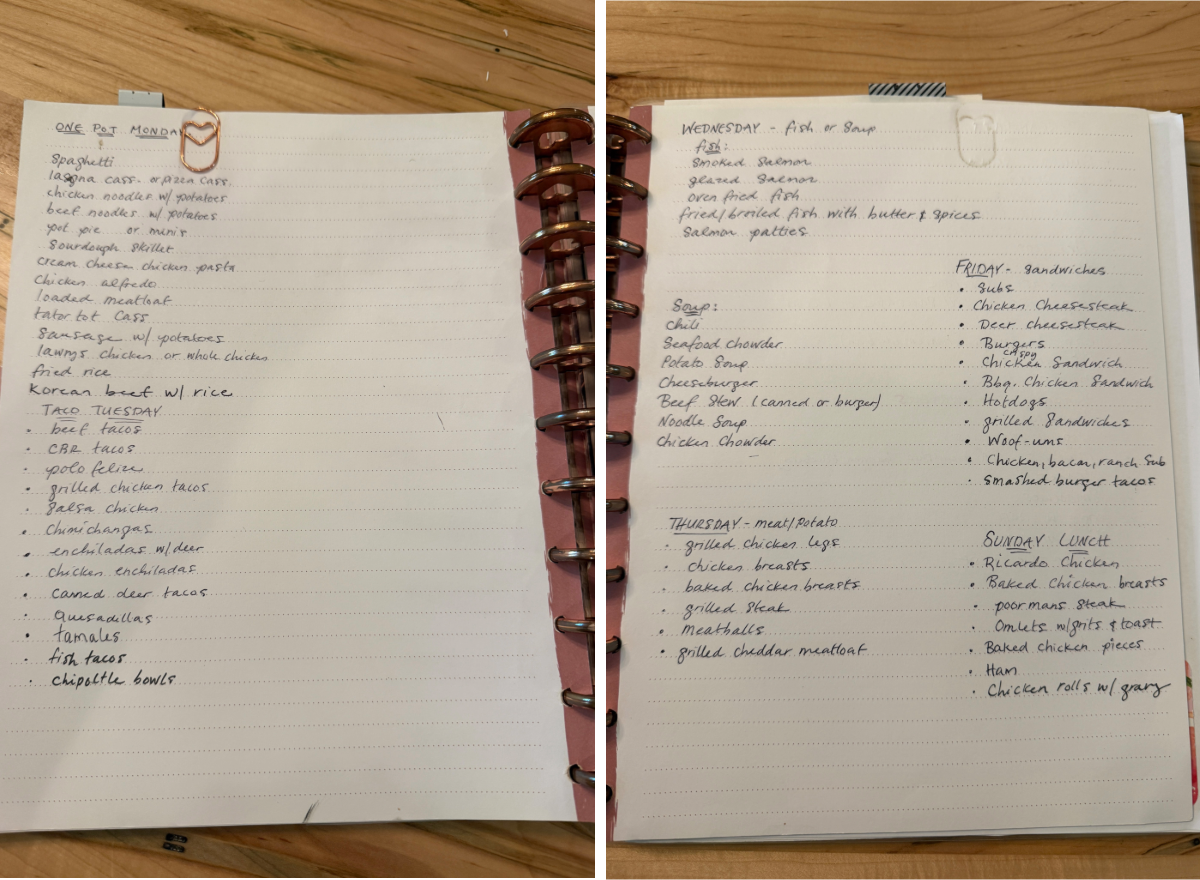 ONE POT MONDAY
Spaghetti
lasagna cass. or pizza cass.
chicken noodles w/ potatoes
beef noodles w/ potatoes
pot pie or minis
Sourdough Skillet
cream cheese chicken pasta
Chicken alfredo
loaded meatloaf
tator tot Cass
Sausage w/ potatoes
lawrys chicken or whole chicken
fried rice
Korean beef w/ rice
TACO TUESDAY
• beef tacos
• CBR tacos
• polo felize
• grilled chicken tacos
• Salsa chicken
• Chimichangas
• enchiladas w/ deer
• chicken enchiladas
• canned deer tacos
• Quesadillas
• tamales
• fish tacos
• chipoltle bowls
WEDNESDAY - fish or Soup
fish:
Smoked Salmon
glazed Salmon
oven fried fish
fried/broiled fish with butter & Spices
Salmon patties
Soup:
Chili
Seafood Chowder
Potato Soup
Cheeseburger
Beef Stew (canned or burger)
Noodle Soup
Chicken Chowder
THURSDAY - meat/Potato
• grilled chicken legs
• chicken breasts
• baked chicken breasts
• grilled Steak
• meatballs
• grilled cheddar meatloaf
FRIDAY - Sandwiches
• Subs
• Chicken Cheesesteak
• Deer cheesesteak
• Burgers
• Chicken crispy Sandwich
• Bbq. Chicken Sandwich
• Hotdogs
• grilled Sandwiches
• Woof-ums
• Chicken, bacon, ranch Sub
• Smashed burger tacos
SUNDAY LUNCH
• Ricardo Chicken
• Baked Chicken breasts
• poor mans Steak
• Omlets w/grits & toast
• Baked chicken pieces
• Ham
• Chicken rolls w/ gravy